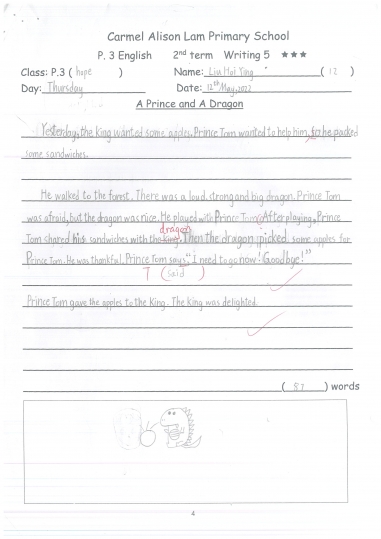 Carmel Alison Lam Primary School
P. 3 English 2nd term Writing 5 ★★★
Class: P.3 ( hope ) Name: Liu Hoi Ying ( 12 )
Day: Thursday Date: 12th May, 2022
A Prince and A Dragon
Yesterday, the king wanted some apples. Prince Tom wanted to help him, so he packed
some sandwiches.
He walked to the forest. There was a loud, strong and big dragon. Prince Tom
was afraid, but the dragon was nice. He played with Prince Tom. After playing, Prince
dragon
Tom shared his sandwiches with the king. Then the dragon picked some apples for
Prince Tom. He was thankful. Prince Tom says "I need to go now! Goodbye!"
T (said)
Prince Tom gave the apples to the King. The king was delighted.
( 87 ) words
4